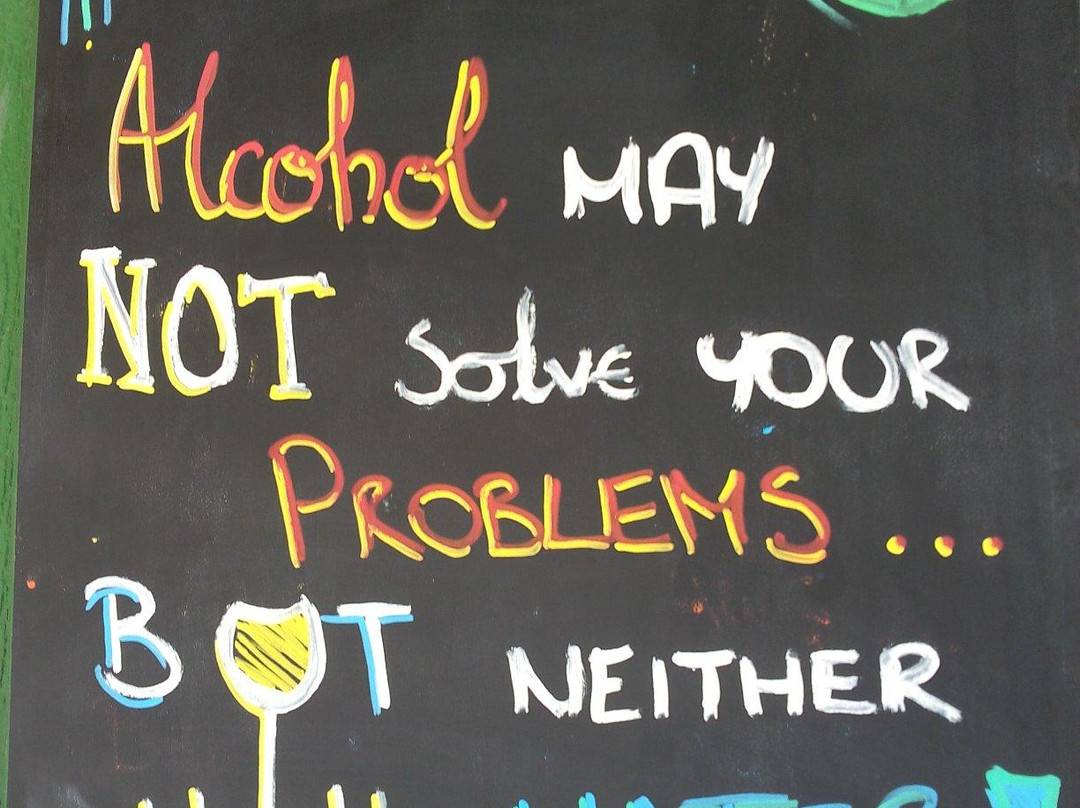 Alcohol MAY
NOT Solve YOUR
PROBLEMS ...
BUT NEITHER